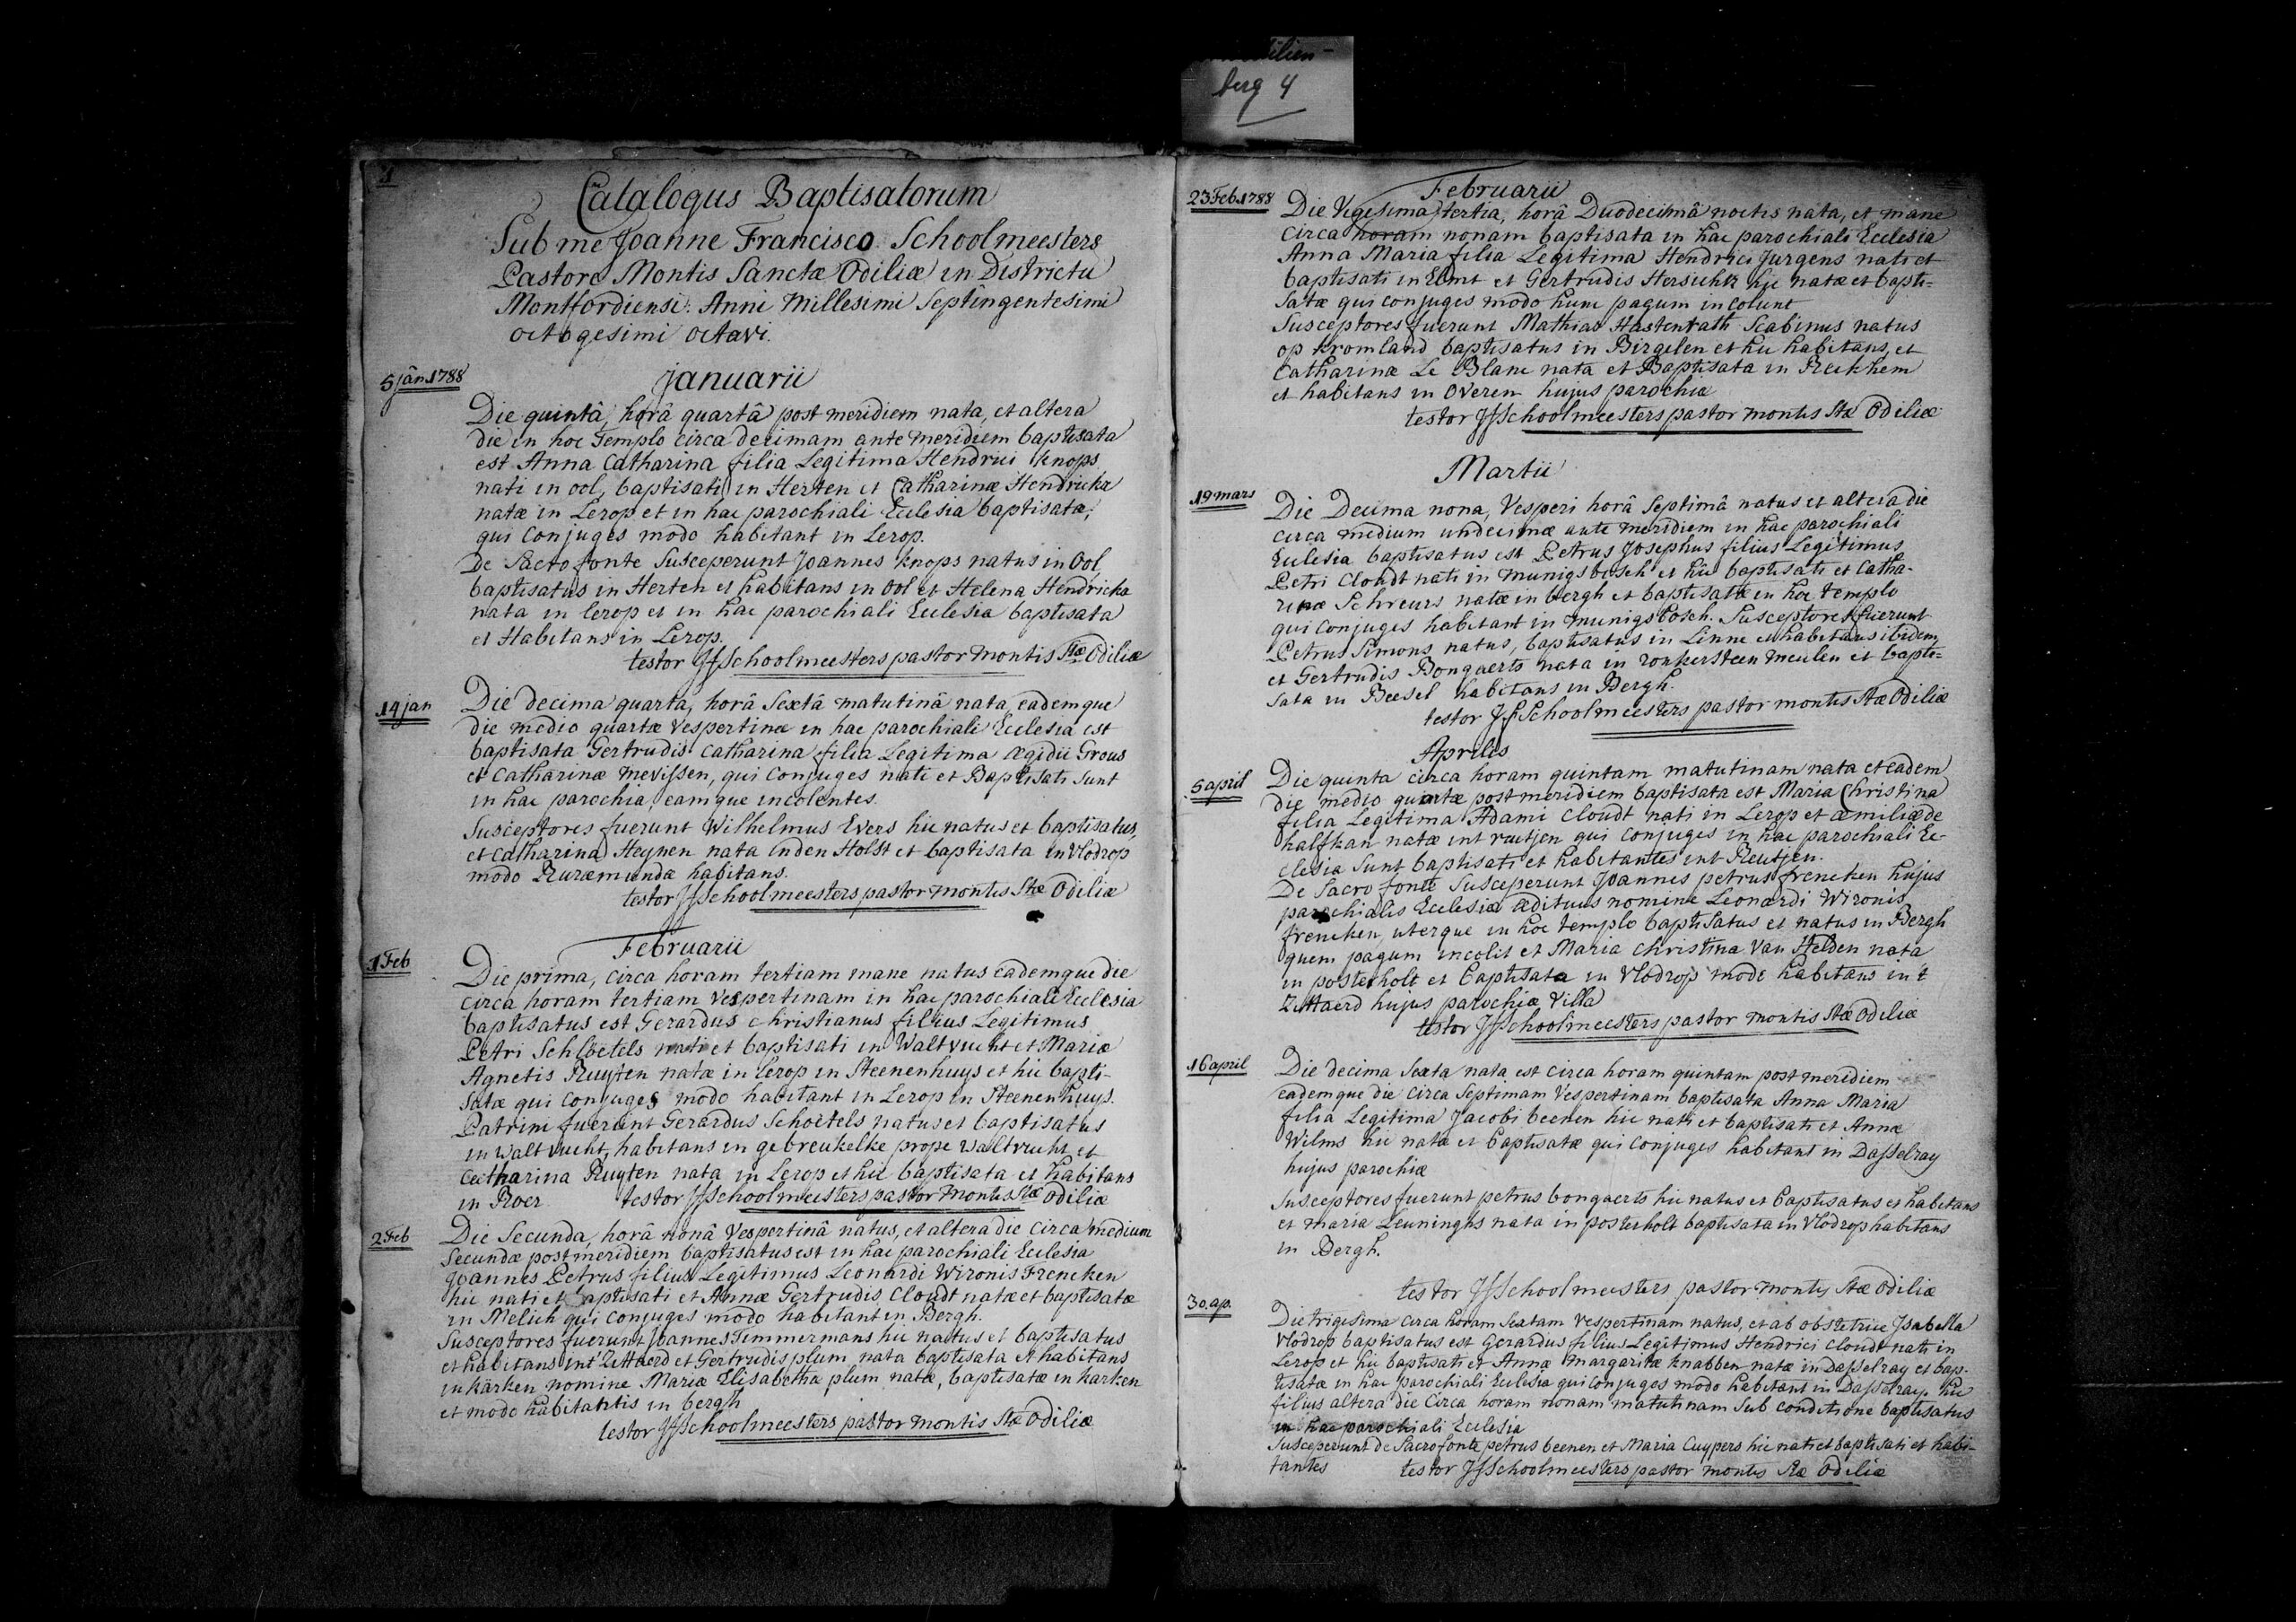 berg 4
1
Catalogus Baptisatorum
Sub me Joanne Francisco Schoolmeesters
Pastore Montis Sanctæ Odiliæ in Districtu
Montfordiensi. Anni Millesimi Septingentesimi
octogesimi octavi.
Januarii
5 jan 1788
Die quintâ, horâ quartâ post meridiem nata, et altera
die in hoc Templo circa decimam ante meridiem baptisata
est Anna Catharina filia Legitima Hendrici Knops
nati in ool, baptisati in Herten et Catharinæ Hendrickx
natæ in Lerop et in hac parochiali Ecclesia baptisatæ,
qui conjuges modo habitant in Lerop.
De Sacro fonte Susceperunt Joannes Knops natus in Ool,
baptisatus in Herten et habitans in Ool et Helena Hendrickx
nata in lerop et in hac parochiali Ecclesia baptisata
et Habitans in Lerop.
testor JfSchoolmeesters pastor Montis Stæ Odiliæ
14 jan
Die decima quarta, horâ Sextâ matutinâ nata, eademque
die medio quartæ Vespertinæ in hac parochiali Ecclesia est
baptisata Gertrudis Catharina filia Legitima Ægidii Grous
et Catharinæ Mevissen, qui Conjuges nati et Baptisati Sunt
in hac parochia, eamque incolentes.
Susceptores fuerunt Wilhelmus Evers hic natus et baptisatus,
et Catharina Heynen nata inden Holst et baptisata in Vlodrop
modo Ruræmundæ habitans.
testor JfSchoolmeesters pastor montis Stæ Odiliæ
Februarii
1 Feb
Die prima, circa horam tertiam mane natus eademque die
circa horam tertiam Vespertinam in hac parochiali Ecclesia
baptisatus est Gerardus Christianus filius Legitimus
Petri Schloetels nati et baptisati in Waltvucht et Mariæ
Agnetis Ruyten natæ in lerop in Steenenhuys et hic bapti-
satæ qui conjuges modo habitant in Lerop in Steenenhuys.
Patrini fuerunt Gerardus Schoetels natus et baptisatus
in Waltvucht, habitans in gebreukelke prope Waltvucht, et
Catharina Ruyten nata in Lerop et hic baptisata et habitans
in Roer testor JfSchoolmeesters pastor Montis Stæ Odiliæ
2 Feb
Die Secunda, horâ nonâ Vespertinâ natus, et altera die Circa medium
Secundæ postmeridiem baptisatus est in hac parochiali Ecclesia
Joannes Petrus filius Legitimus Leonardi Wironis Frencken
hic nati et baptisati et Annæ Gertrudis Cloudt natæ et baptisatæ
in Melick qui conjuges modo habitant in Bergh.
Susceptores fuerunt Joannes Timmermans hic natus et baptisatus
et habitans int Zittaerd et Gertrudis plum nata baptisata et habitans
in kärken nomine Mariæ Elisabetha plum natæ, baptisatæ in karken
et modo habitantis in bergh
testor JfSchoolmeesters pastor montis Stæ Odiliæ
Februarii
23 Feb. 1788
Die Vigesima tertia, horâ Duodecimâ noctis nata, et mane
circa horam nonam baptisata in hac parochiali Ecclesia
Anna Maria filia Legitima Hendrici Jurgens nati et
baptisati in Elmt et Gertrudis Hersichtz hic natæ et bapti-
satæ qui conjuges modo hunc pagum incolunt
Susceptores fuerunt Mathias Hastenrath Scabinus natus
op kromland baptisatus in Birgelen et hic habitans, et
Catharina Le Blanc nata et Baptisata in Reckhem
et habitans in Overen hujus parochiæ
testor JfSchoolmeesters pastor montis Stæ Odiliæ
Martii
19 mars
Die Decima nona, Vesperi horâ Septimâ natus et altera die
circa medium undecimæ ante meridiem in hac parochiali
Ecclesia baptisatus est Petrus Josephus filius Legitimus
Petri Cloudt nati in munigsbosch et hic baptisati et Catha-
rinæ Schreurs natæ in bergh et baptisatæ in hoc templo
qui conjuges habitant in munigsbosch. Susceptores fuerunt
Petrus Simons natus, baptisatus in Linne et habitans ibidem,
et Gertrudis Bongaerts nata in ronkersteen meulen et bapti-
sata in Beesel habitans in Bergh.
testor JfSchoolmeesters pastor montis Stæ Odiliæ
Aprilis
5 april
Die quinta circa horam quintam matutinam nata et eadem
die medio quartæ post meridiem baptisata est Maria Christina
filia Legitima Adami Cloudt nati in Lerop et æmiliæ de
halfkan natæ int ruitjen qui conjuges in hac parochiali Ec-
clesia Sunt baptisati et habitantes int Reutjen.
De Sacro fonte Susceperunt Joannes petrus frencken hujus
parochialis Ecclesiæ ædituus nomine Leonardi Wironis
frencken, uterque in hoc templo baptisatus et natus in Bergh
quem pagum incolit et Maria Christina Van Helden nata
in posterholt et baptisata in Vlodrop modo habitans in t
Zittaerd hujus parochiæ Villa
testor JfSchoolmeesters pastor montis Stæ Odiliæ
16 april
Die decima Sexta nata est circa horam quintam post meridiem
eademque die circa Septimam Vespertinam baptisata Anna Maria
filia Legitima Jacobi beenen hic nati et baptisati et Annæ
Wilms hic natæ et baptisatæ qui conjuges habitant in Dasselray
hujus parochiæ
Susceptores fuerunt petrus bongaerts hic natus et baptisatus et habitans
et maria Leuninghs nata in posterholt baptisata in Vlodrop habitans
in Bergh.
testor JfSchoolmeesters pastor montis Stæ Odiliæ
30. ap.
Die trigesima circa horam Sextam Vespertinam natus, et ab obstetrice Isabella
Vlodrop baptisatus est Gerardus filius Legitimus Hendrici Cloudt nati in
Lerop et hic baptisati et Annæ margaritæ knabben natæ in Dasselray et bap-
tisatæ in hac parochiali Ecclesia qui conjuges modo habitant in Dasselray. hic
filius altera die circa horam nonam matutinam Sub conditione baptisatus
in hac parochiali Ecclesia
Susceperunt de Sacro fonte petrus beenen et Maria Cuypers hic nati et baptisati et habi-
tantes testor JfSchoolmeesters pastor montis Stæ Odiliæ